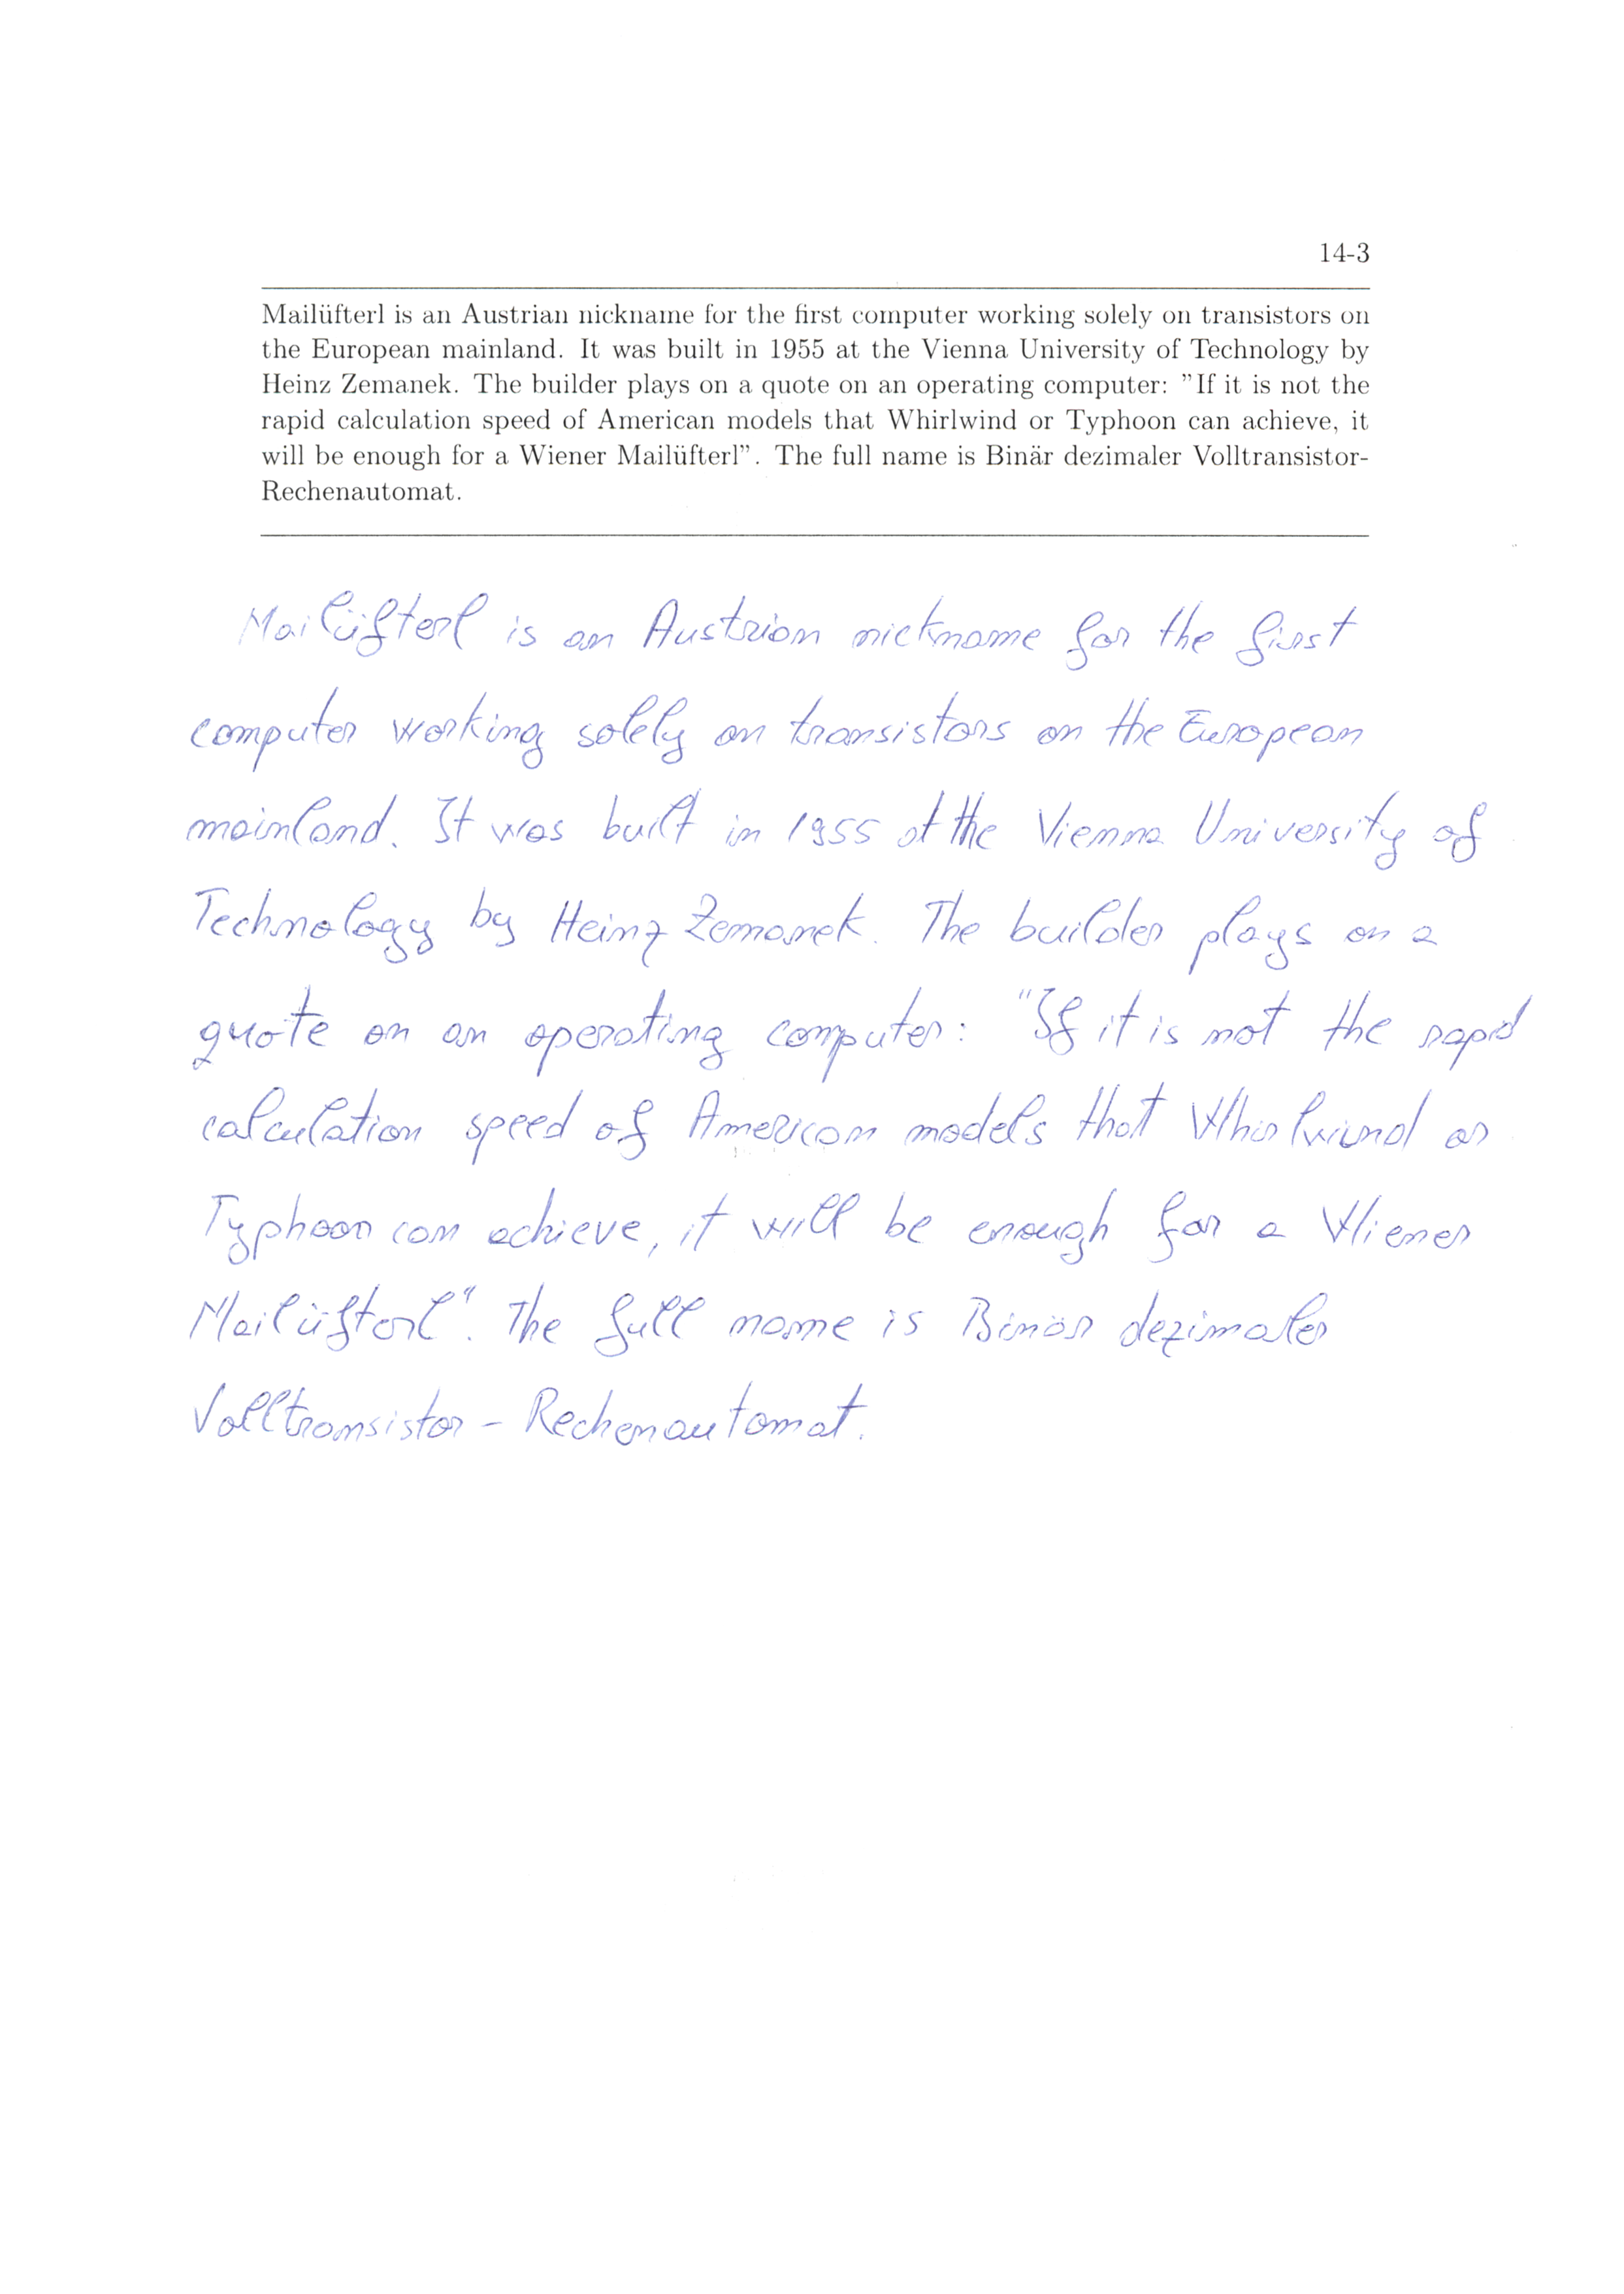 14-3
Mailüfterl is an Austrian nickname for the first computer working solely on transistors on
the European mainland. It was built in 1955 at the Vienna University of Technology by
Heinz Zemanek. The builder plays on a quote on an operating computer: "If it is not the
rapid calculation speed of American models that Whirlwind or Typhoon can achieve, it
will be enough for a Wiener Mailüfterl". The full name is Binär dezimaler Volltransistor-
Rechenautomat.
Mailüfterl is an Austrian nickname for the first
computer working solely on transistors on the European
mainland. It was built in 1955 at the Vienna University of
Technology by Heinz Zemanek. The builder plays on a
quote on an operating computer: "If it is not the rapid
calculation speed of American models that Whirlwind or
Typhoon can achieve, it will be enough for a Wiener
Mailüfterl". The full name is Binär dezimaler
Volltransistor - Rechenautomat.